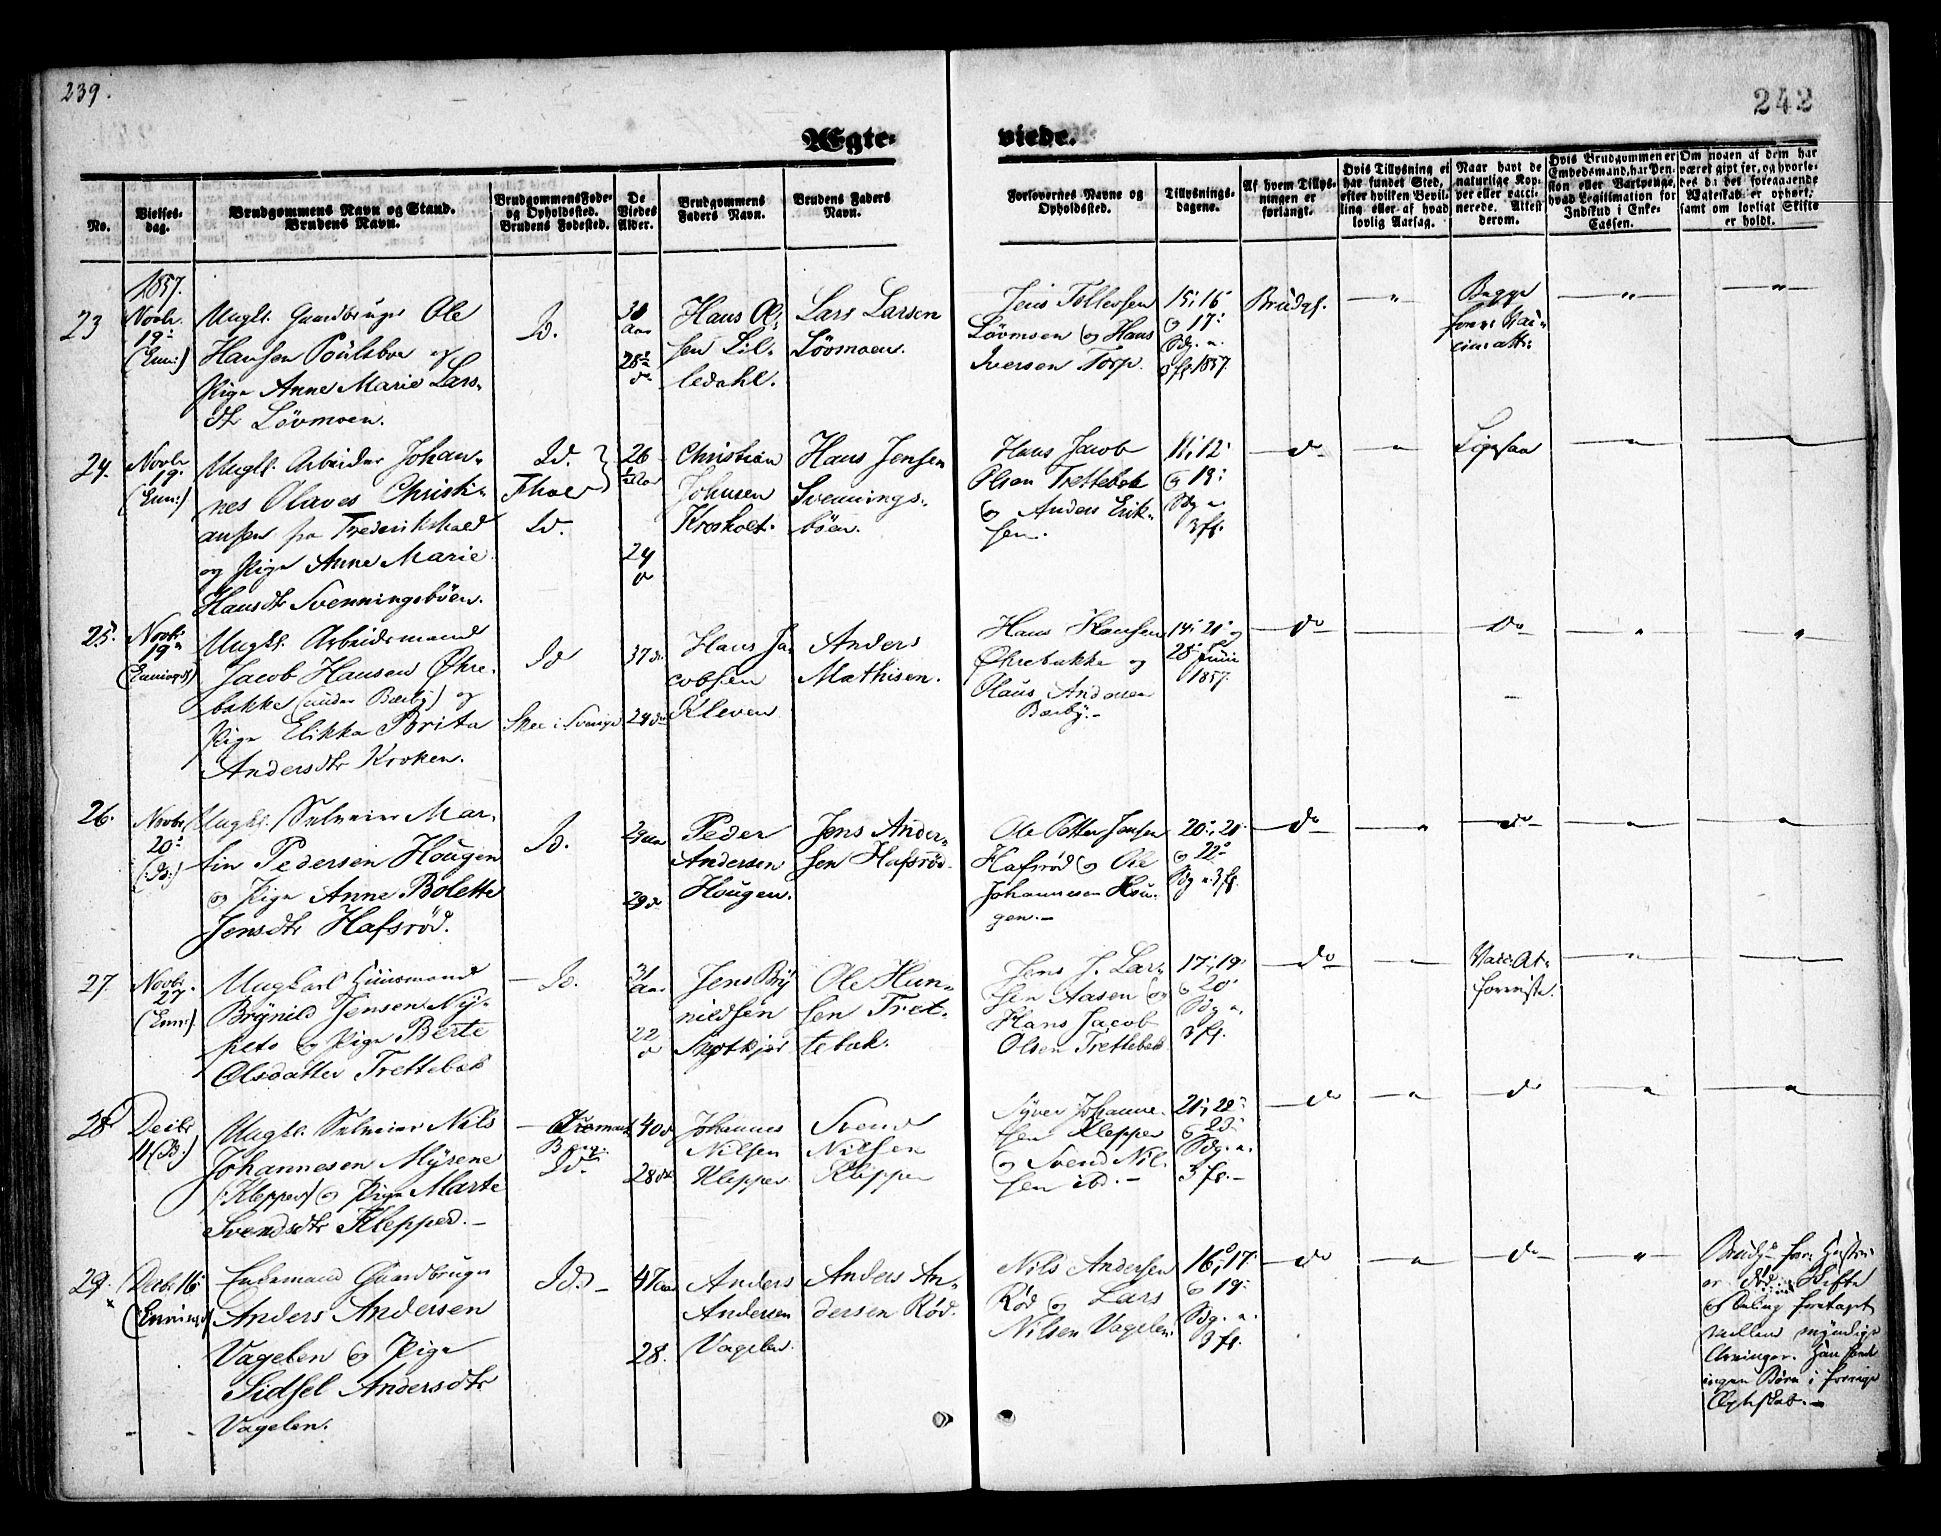 239.
242
Ægte-
viede.
No.
Vielses-
dag.
Brudgommens Navn og Stand.
Brudens Navn.
Brudgommens Føde-
og Opholdssted.
Brudens Fødested.
De
Viedes
Alder.
Brudgommens
Faders Navn.
Brudens Faders
Navn.
Forlovernes Navne og
Opholdssted.
Tillysnings-
dagene.
Af hvem Tillys-
ningen er
forlangt.
Hvis Tillysning ei
har fundet Sted,
efter hvilken Bevil-
ling eller af hvad
lovlig Aarsag.
Naar havt de
naturlige Kop-
per eller vacci-
nerede. Attest
derom.
Hvis Brudgommen er
Embedsmand, har Pen-
sion eller Vartpenge,
hvad Legitimation for
Indskud i Enke-
Cassen.
Om nogen af dem har
været gift før, og hvorle-
des da det foregaaende
Ægteskab er ophørt,
samt om lovligt Skifte
er holdt.
1857.
23
Novbr
19
(Enn:)
Ungk. Gaardbruger Ole
Hansen Poulsbo og
Pige Anne Marie Lars-
dtr Lövmoen.
Id.
30
Aar
28
do
Hans Ol-
sen Lil-
ledahl.
Lars Larsen
Lövmoen.
Jens Tollevsen
Lövmoen og Hans
Iversen Torp.
15; 16
og 17
Sdg. e.
1857.
Brudgf.
Begge
24.
Novbr
19
(Enn:)
Ungk. Arbeider Johan-
nes Olaves Christi-
ansen fra Frederikshald
og Pige Anne Marie
Hansdtr Svenningsböen.
Id.
Fhald
Id.
26
24
do
Christian
Johnsen
Krosholt
Hans Jensen
Svennings-
böen.
Hans Jacob
Olsen Trettebak
og Anders Erik-
sen.
11; 12
og 13
Sdg e.
3 ff.
do
Ligesaa
25.
Novbr
19
(Enningd)
Ungk. Arbeidsmand
Jacob Hansen Ökre-
bakke (under Bærby) og
Pige Elikka Brita
Andersdtr Kroken.
Id
Skee i Sverige
37 do
24 do
Hans Ja-
cobsen
Kleven
Anders
Mathisen.
Hans Hansen
Ökrebakke og
Olaus Andersen
Bærby.-
14; 21 og
28 Juni
1857.
do
do
26.
Novbr
20
(Id:)
Ungk. Selveier Mar-
tin Pedersen Hougen
og Pige Anne Bolette
Jensdtr Hafsröd.
Id.
29 aar
29 do
Peder
Andersen
Hougen.
Jens Ander-
sen Hafsröd.
Ole Petter Jensen
Hafsröd og Ole
Johannesen Hou-
gen.-
20; 21
og 22
Sdg e. 3 ff.
do
do
27.
Novbr
27
(Enn:)
Ungkarl Huusmand
Brynild Jensen Ny-
og Pige Berte
Olsdatter Trettebak
Id.
31
Aar
22
do
Jens Bry
nildsen
Ole Han-
sen Tret-
tebak.
Jens J. Lar-
sen Aasen og
Hans Jacob
Olsen Trettebak
17; 19
og 20
Sdg e.
3 ff.
do
28
Decbr
11 (Id:)
Ungk. Selveier Nils
Johannesen Myrene
(Klepper) og Pige Marte
Svendsdtr Klepper.-
Berg.
Id.
40 do
28 do
Johannes
Nilsen
Klepper
Svend
Nilsen
Klepper
Syver Johanne-
sen Klepper
og Svend Nil-
sen ibd.-
21; 22
og 23
Sdg. e.
3 ff.-
do
do
29.
Decb. 16
(Enningd)
Enkemand Gaardbruger
Anders Andersen
Vagelen og Pige
Sidsel Andersdtr
Vagelen.
Id.-
47 aar
28.
Anders
Andersen
Vagelen.
Anders An-
dersen Röd.
Nils Andersen
Röd og Lars
Nilsen Vagelen.
16; 17
og 19
Sdg. e.
3 ff.
do
do
Brudg. forr. Hustru
er död; Skifte
og Deling foretaget
mellem myndige
Arvinger. Han havde
ingen Börn i forrige
Ægteskab.-